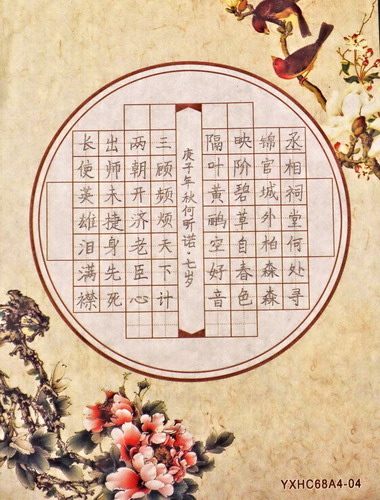 丞相祠堂何处寻
锦官城外柏森森
映阶碧草自春色
隔叶黄鹂空好音
庚子年秋何昕诺·七岁
三顾频烦天下计
两朝开济老臣心
出师未捷身先死
长使英雄泪满襟
YXHC68A4-04